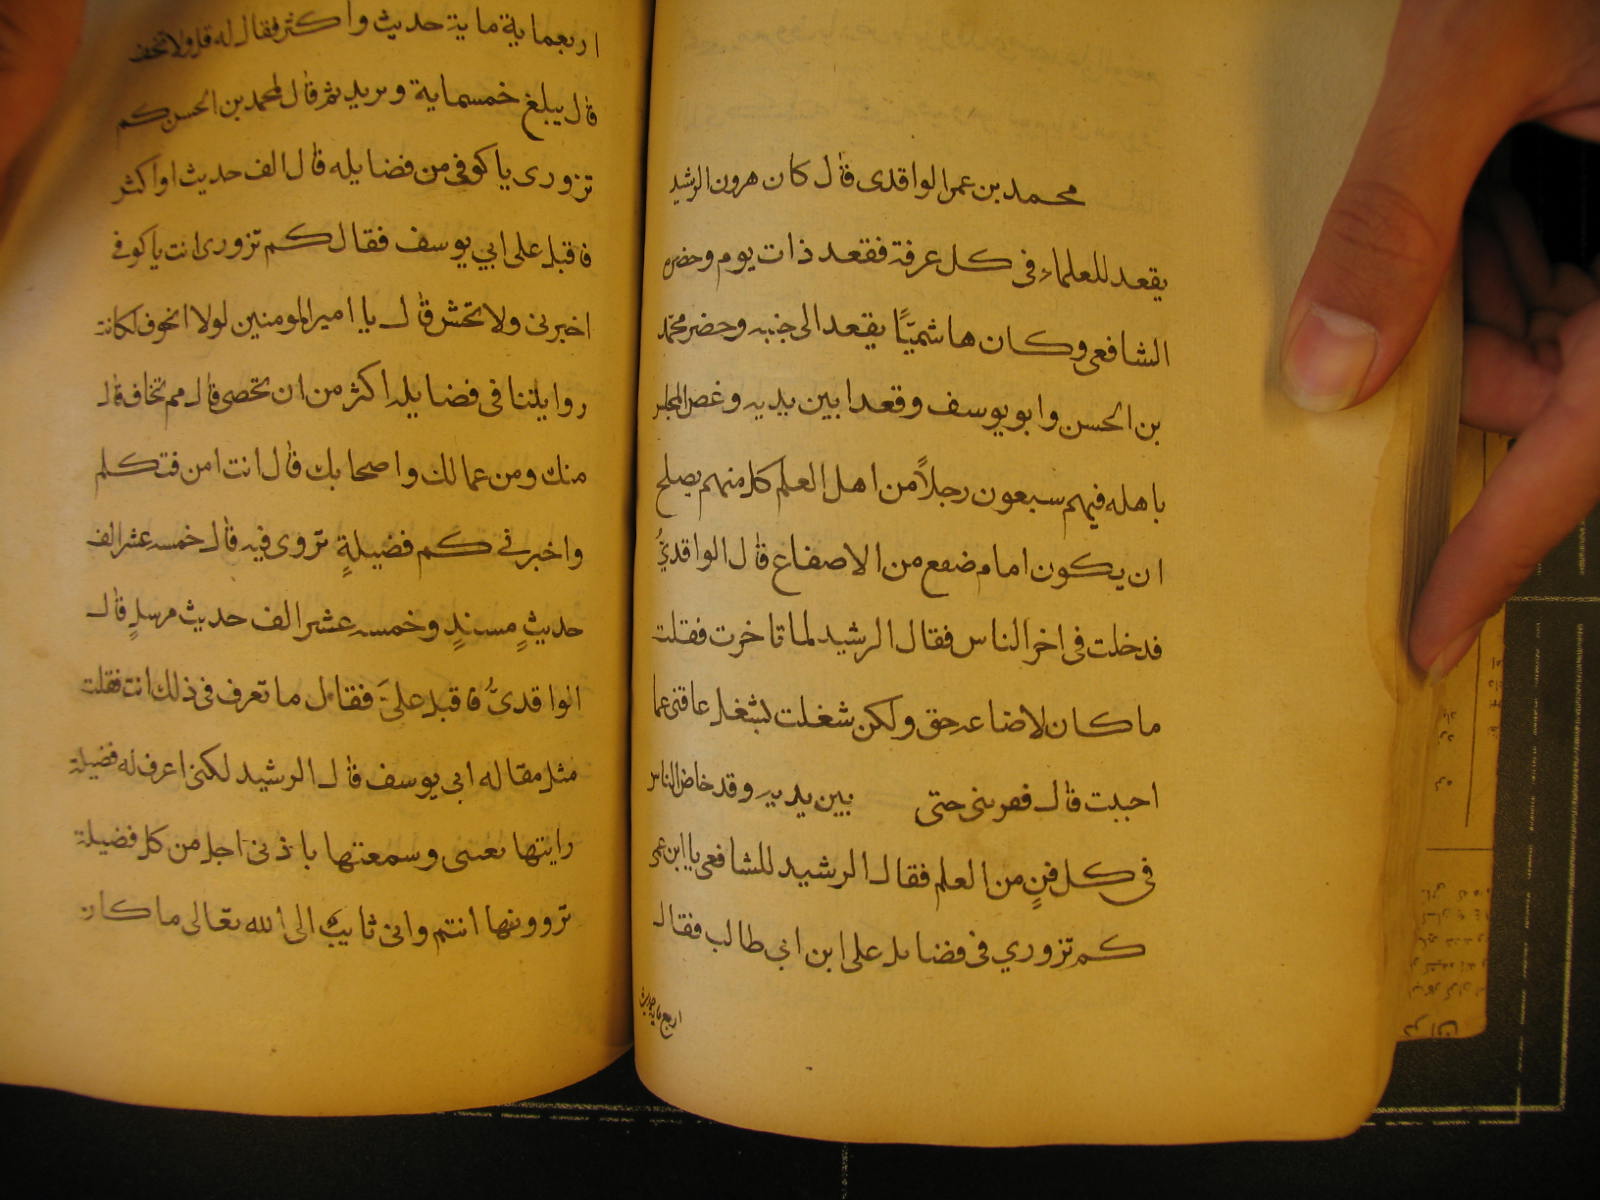 محمد بن عمر الواقدى قال كان هرون الرشيد
يقعد للعلماء فى كل عرفة فقعد ذات يوم وحضره
الشافعى وكان هاشميًا يقعد الى جنبه وحضر محمد
بن الحسن وابو يوسف وقعدا بين يديه وغص المجلس
باهله فيهم سبعون رجلاً من اهل العلم كل منهم يصلح
ان يكون امام صقع من الاصقاع قال الواقدىُّ
فدخلت فى اخر الناس فقال الرشيد لما تاخرت فقلت
ما كان لاضاعه حق ولكن شغلت بشغل عاقنى عما
احببت قال فقربنى حتى بين يديه وقد خاض الناس
فى كل فنٍ من العلم فقال الرشيد للشافعى يا ابن عمى
كم تزوري فى فضايل على ابن ابي طالب فقال
اربعماية
اربعماية ماية حديث واكثر فقال له قل ولا تخف
قال يبلغ خمسماية ويزيد ثم قال لمحمد بن الحسن كم
تزورى يا كوفى من فضايله قال الف حديث او اكثر
فاقبل على ابي يوسف فقال كم تزورى انت يا كوفى
اخبرنى ولا تخش قال يا امير المومنين لولا الخوف لكانت
روايتنا فى فضايله اكثر من ان تحصى قال مم تخاف قال
منك ومن عمالك واصحابك قال انت امن فتكلم
واخبرنى كم فضيلةٍ تروى فيه قال خمسه عشر الف
حديثٍ مسندٍ وخمسه عشر الف حديث مرسلٍ قال
الواقدىُّ فاقبل علىَّ فقال ما تعرف فى ذلك انت فقلت
مثل مقاله ابى يوسف قال الرشيد لكنى اعرف له فضيلة
رايتها بعينى وسمعتها باذنى اجل من كل فضيلة
تروونها انتم وانى تايب الى الله تعالى ما كان